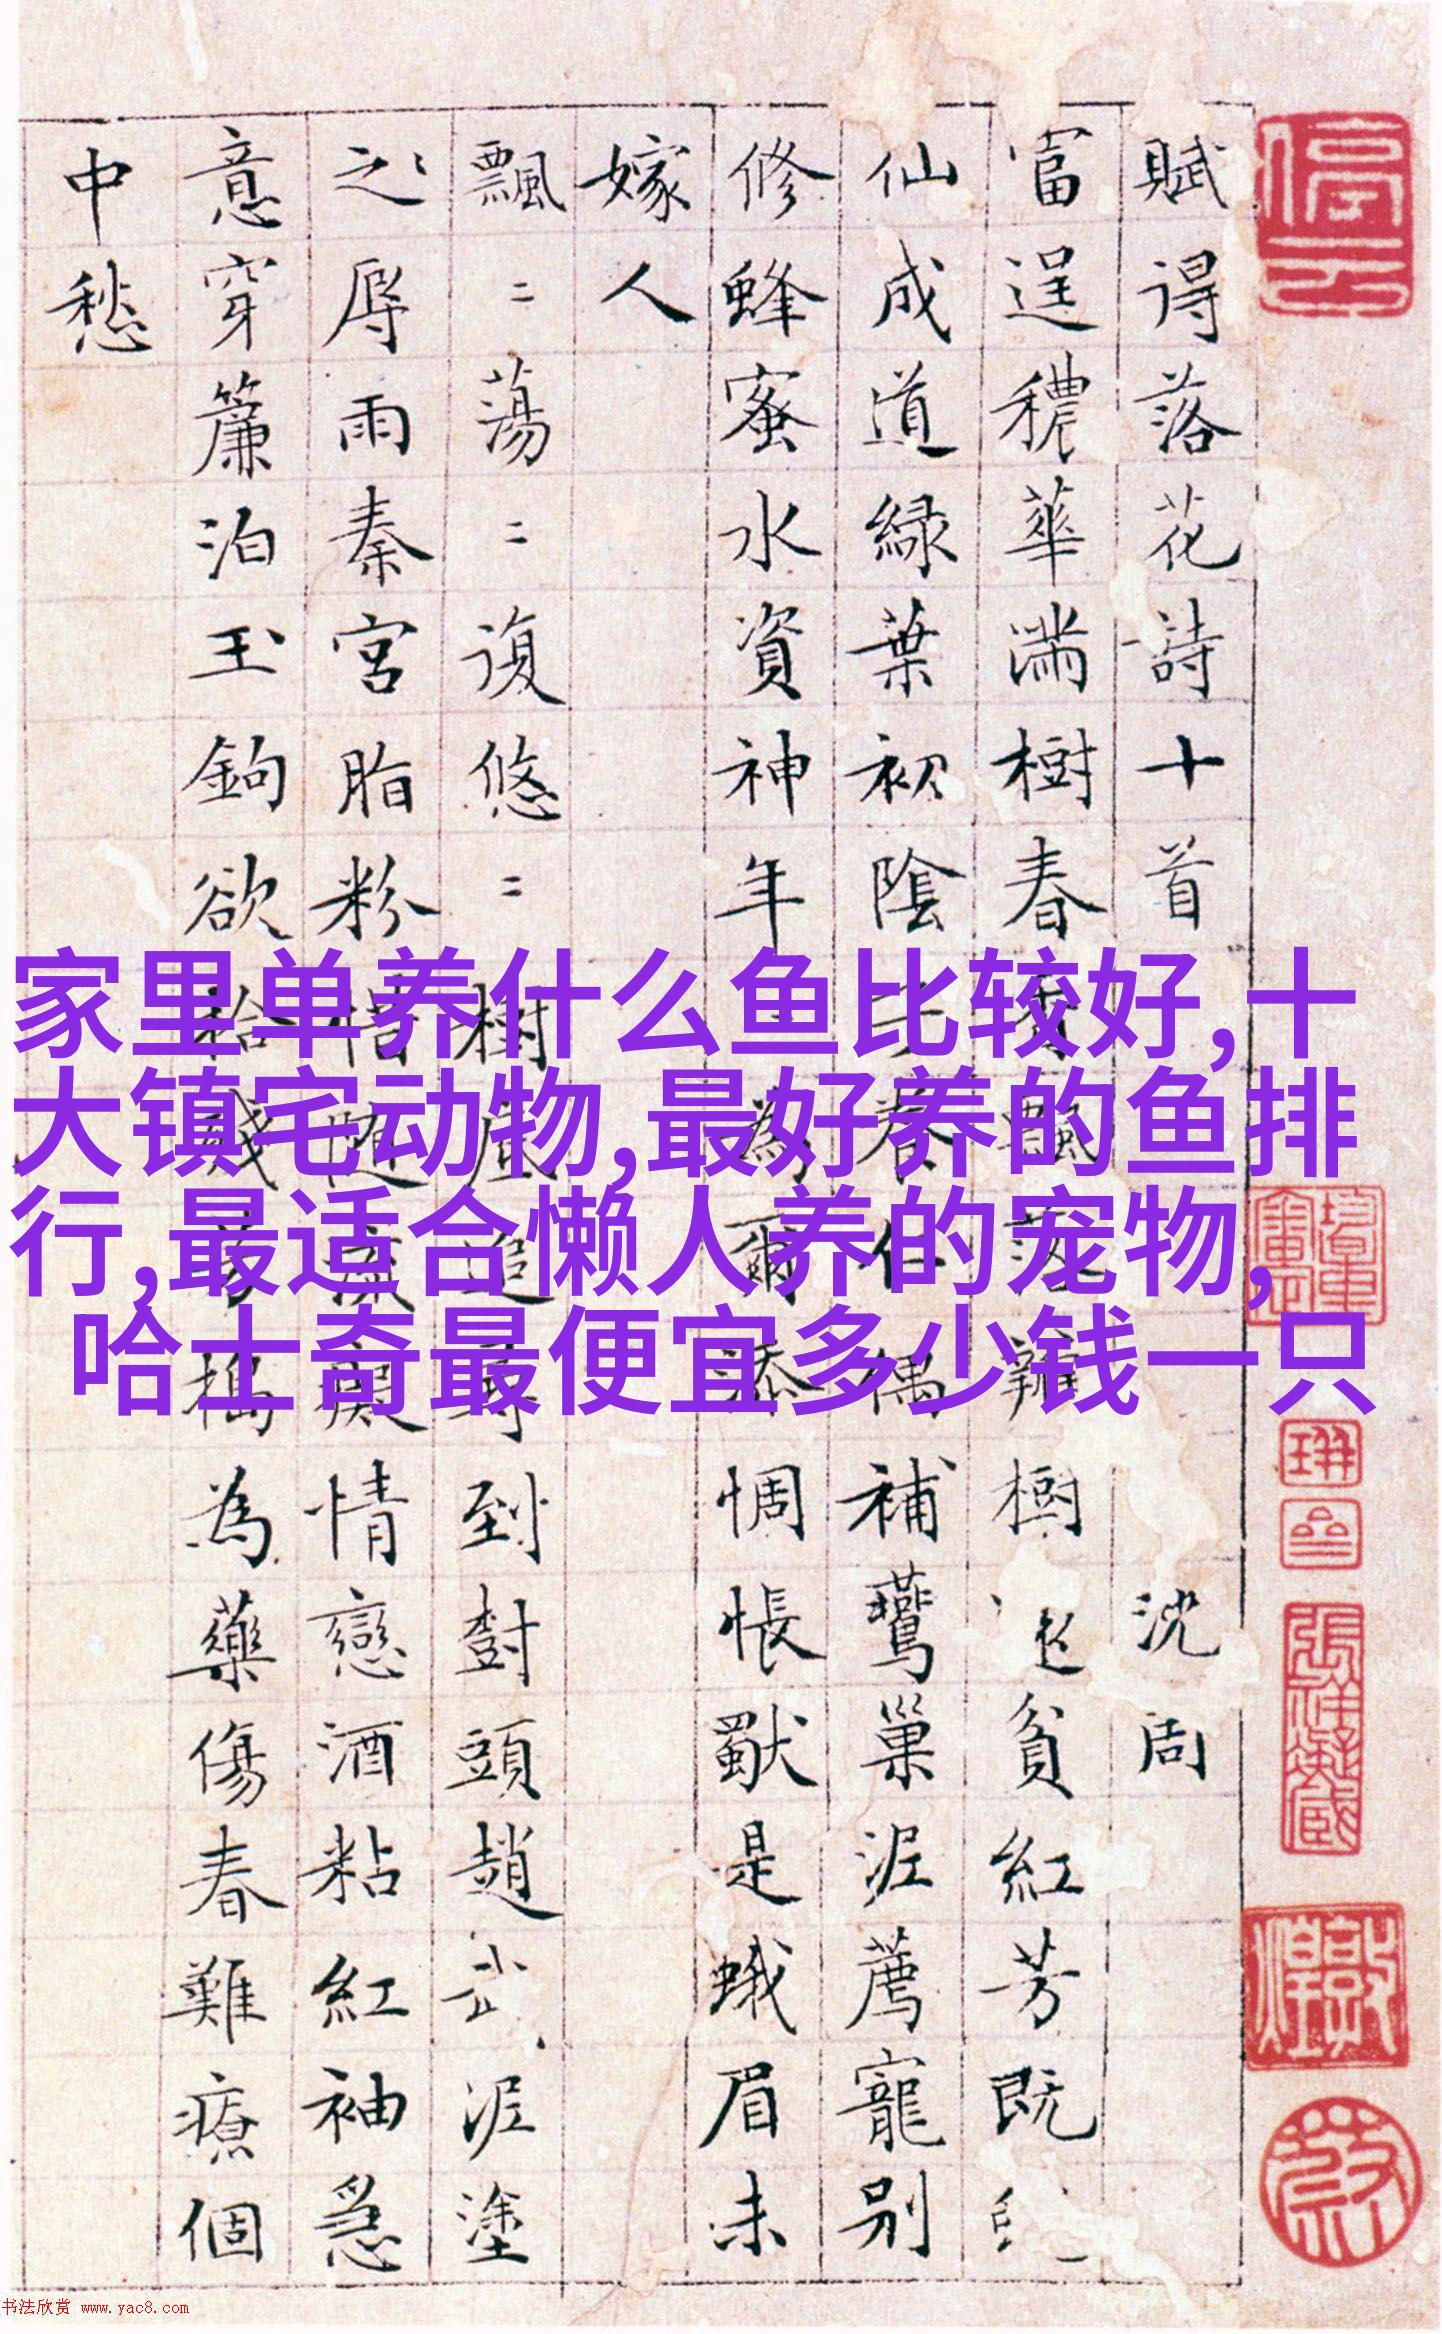 賦得落花詩十首 沈周
富逞穠華滿樹春香飄落瓣樹還貧紅芳既
仙成道綠葉初陰子養仁偶補鶯巢泥薦寵別
修蜂蜜水資神年年為爾添惆悵獃是蛾眉未
嫁人
飄〻蕩〻復悠〻樹底追尋到樹頭趙武泥塗
之辱雨秦宮脂粉惜隨流癡情戀酒粘紅袖急
意穿簾泊玉鉤欲拾殘芳搗為藥傷春難療個
中愁
家里单养什么鱼比较好,十
大镇宅动物,最好养的鱼排
行,最适合懒人养的宠物,
哈士奇最便宜多少钱一只
书法欣赏 www.yac8.com